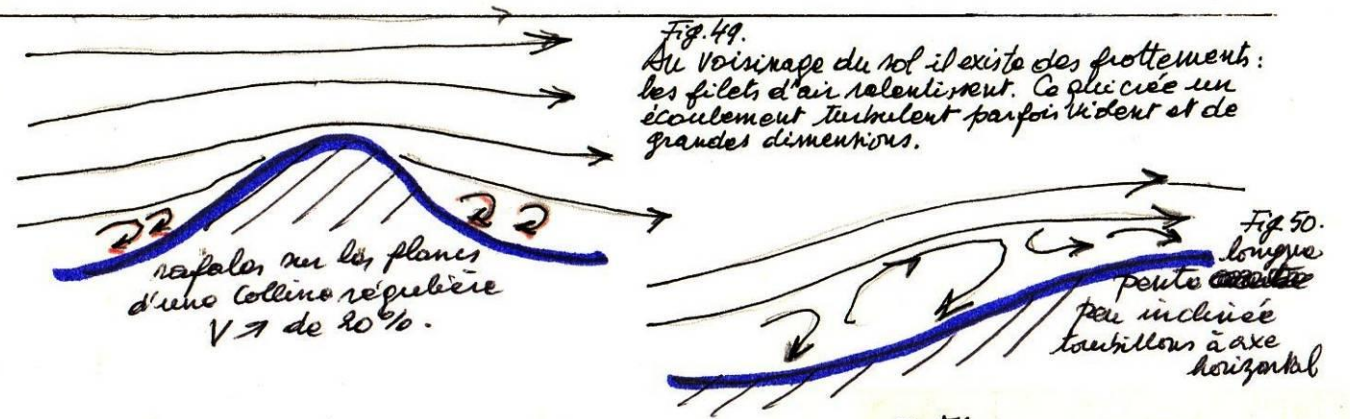 Fig.49.
Au voisinage du sol il existe des frottements :
les filets d'air ralentissent. Ce qui crée un
écoulement turbulent parfois violent et de
grandes dimensions.
rafales sur les flancs
d'une colline régulière
V ↗ de 20%.
Fig 50.
longue
pente
peu inclinée
tourbillons à axe
horizontal